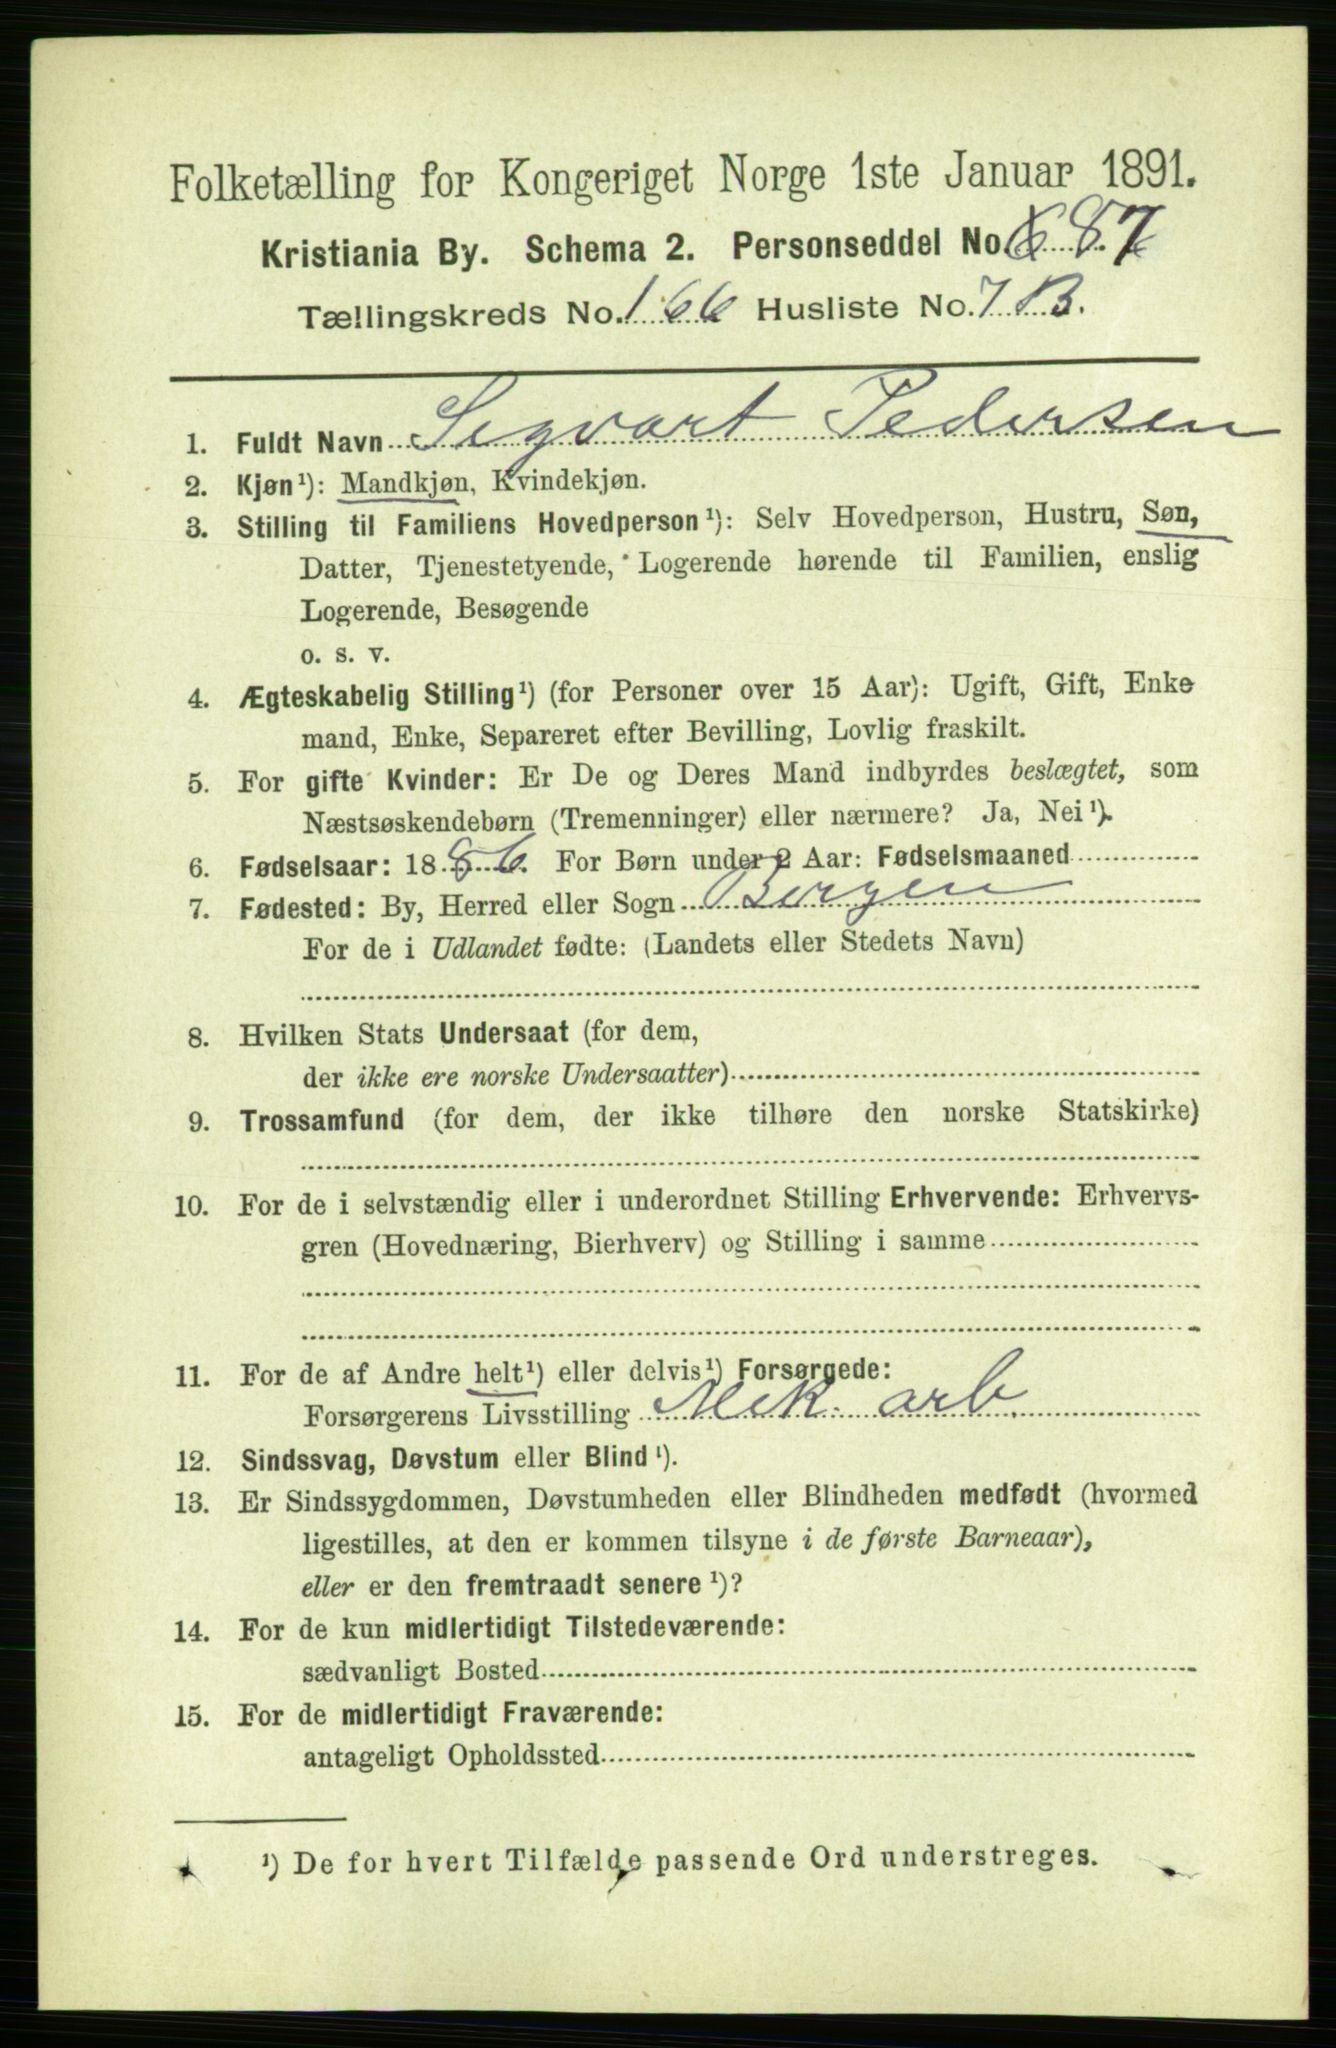 Folketælling for Kongeriget Norge 1ste Januar 1891.
Kristiania By. Schema 2. Personseddel No. 87
Tællingskreds No. 166 Husliste No. 7 B.
1. Fuldt Navn Sigvart Pedersen
2. Kjøn¹): Mandkjøn, Kvindekjøn.
3. Stilling til Familiens Hovedperson¹): Selv Hovedperson, Hustru, Søn,
Datter, Tjenestetyende, Logerende hørende til Familien, enslig
Logerende, Besøgende
o. s. v.
4. Ægteskabelig Stilling¹) (for Personer over 15 Aar): Ugift, Gift, Enke
mand, Enke, Separeret efter Bevilling, Lovlig fraskilt.
5. For gifte Kvinder: Er De og Deres Mand indbyrdes beslægtet, som
Næstsøskendebørn (Tremenninger) eller nærmere? Ja, Nei¹).
6. Fødselsaar: 1886. For Børn under 2 Aar: Fødselsmaaned
7. Fødested: By, Herred eller Sogn Bergen
For de i Udlandet fødte: (Landets eller Stedets Navn)
8. Hvilken Stats Undersaat (for dem,
der ikke ere norske Undersaatter)
9. Trossamfund (for dem, der ikke tilhøre den norske Statskirke)
10. For de i selvstændig eller i underordnet Stilling Erhvervende: Erhvervs-
gren (Hovednæring, Bierhverv) og Stilling i samme
11. For de af Andre helt¹) eller delvis¹) Forsørgede:
Forsørgerens Livsstilling Mek. arb.
12. Sindssvag, Døvstum eller Blind¹).
13. Er Sindssygdommen, Døvstumheden eller Blindheden medfødt (hvormed
ligestilles, at den er kommen tilsyne i de første Barneaar),
eller er den fremtraadt senere¹)?
14. For de kun midlertidigt Tilstedeværende:
sædvanligt Bosted
15. For de midlertidigt Fraværende:
antageligt Opholdssted
¹) De for hvert Tilfælde passende Ord understreges.